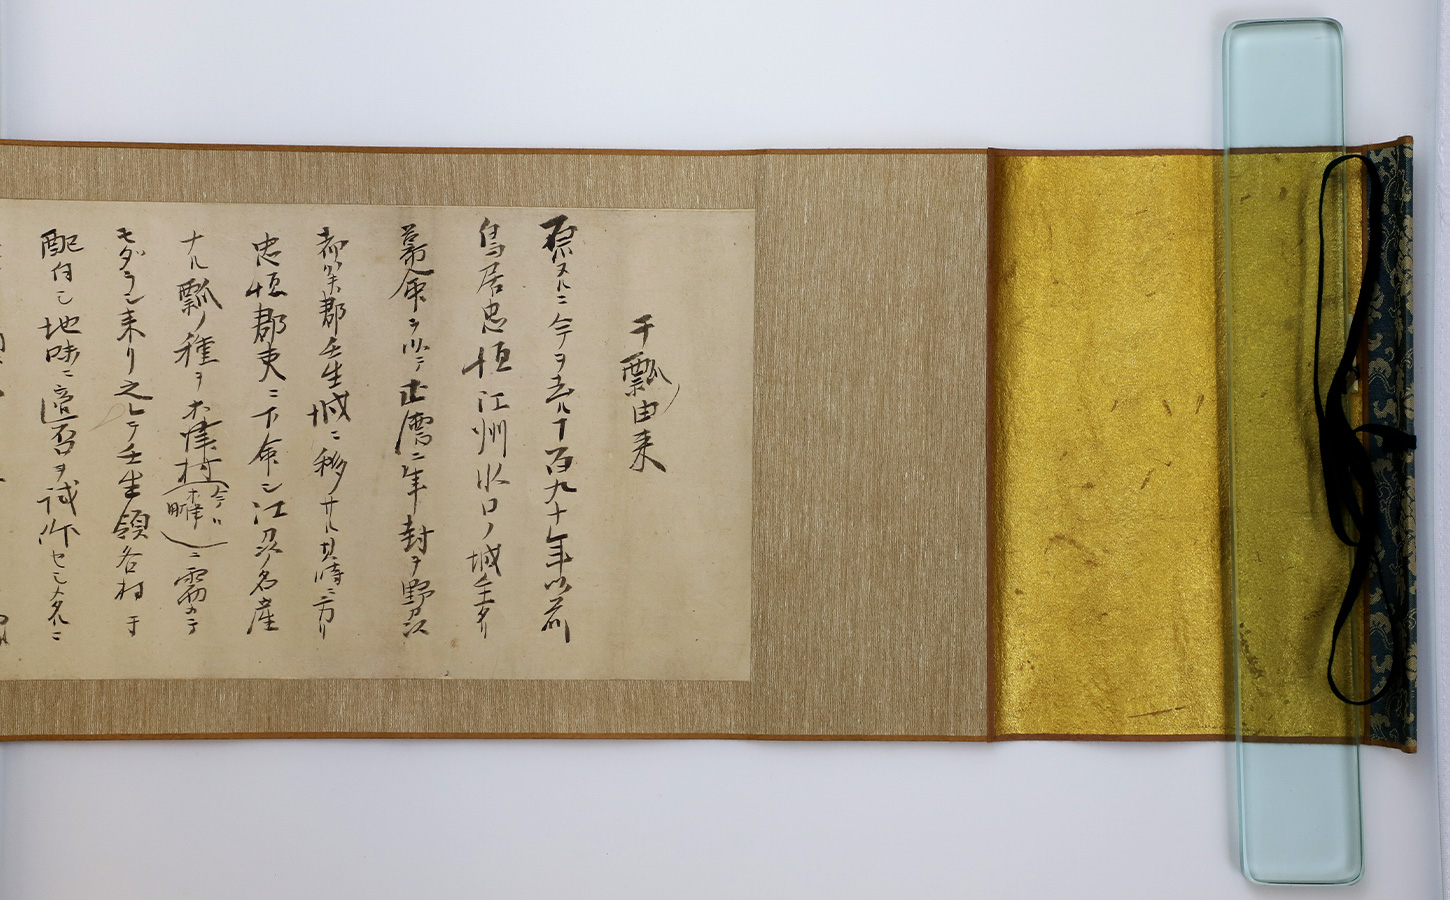 干瓢由来
原ヌルニ今ヲ去ルヿ百九十年以前
鳥居忠恒江州水口ノ城主タリ
幕命ヲ以テ正徳二年封ヲ野刕
都賀郡壬生城ニ移サル其時ニ方リ
忠恒郡吏ニ下命シ江刕名産
ナル瓢ノ種ヲ木津村(今ハ)ニ需メテ
モダラシ来リ之レヲ壬生領各村于
配付シ地味ニ適否ヲ試作セシメタルニ